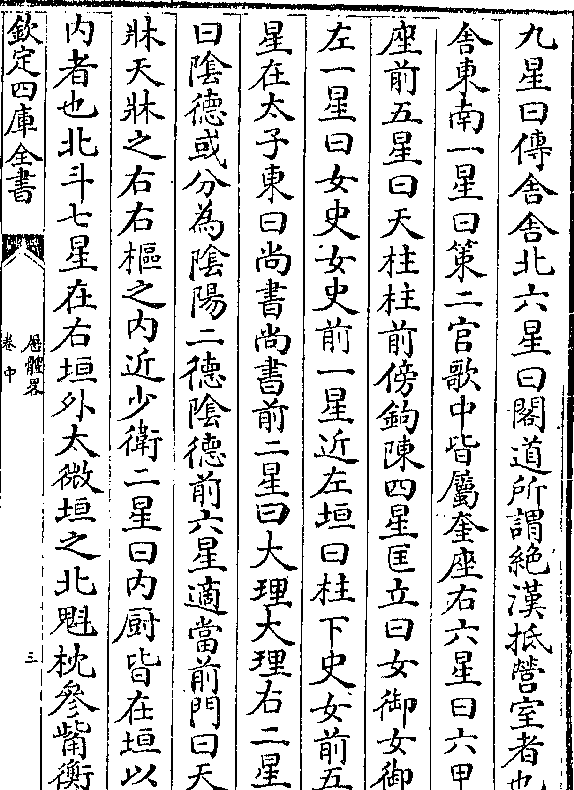 九星曰傳舎舎北六星曰閣道所謂絶漢抵營室者也
舎東南一星曰策二官歌中皆屬奎座右六星曰六甲
座前五星曰天柱柱前傍鉤陳四星匡立曰女御女御
左一星曰女史女史前一星近左垣曰柱下史女前五
星在太子東曰尚書尚書前二星曰大理大理右二星
曰陰德或分為陰陽二德陰德前六星適當前門曰天
牀天牀之右右樞之内近少衛二星曰内厨皆在垣以
内者也北斗七星在右垣外太微垣之北魁枕參觜衡
欽定四庫全書
厯體畧
卷中
三